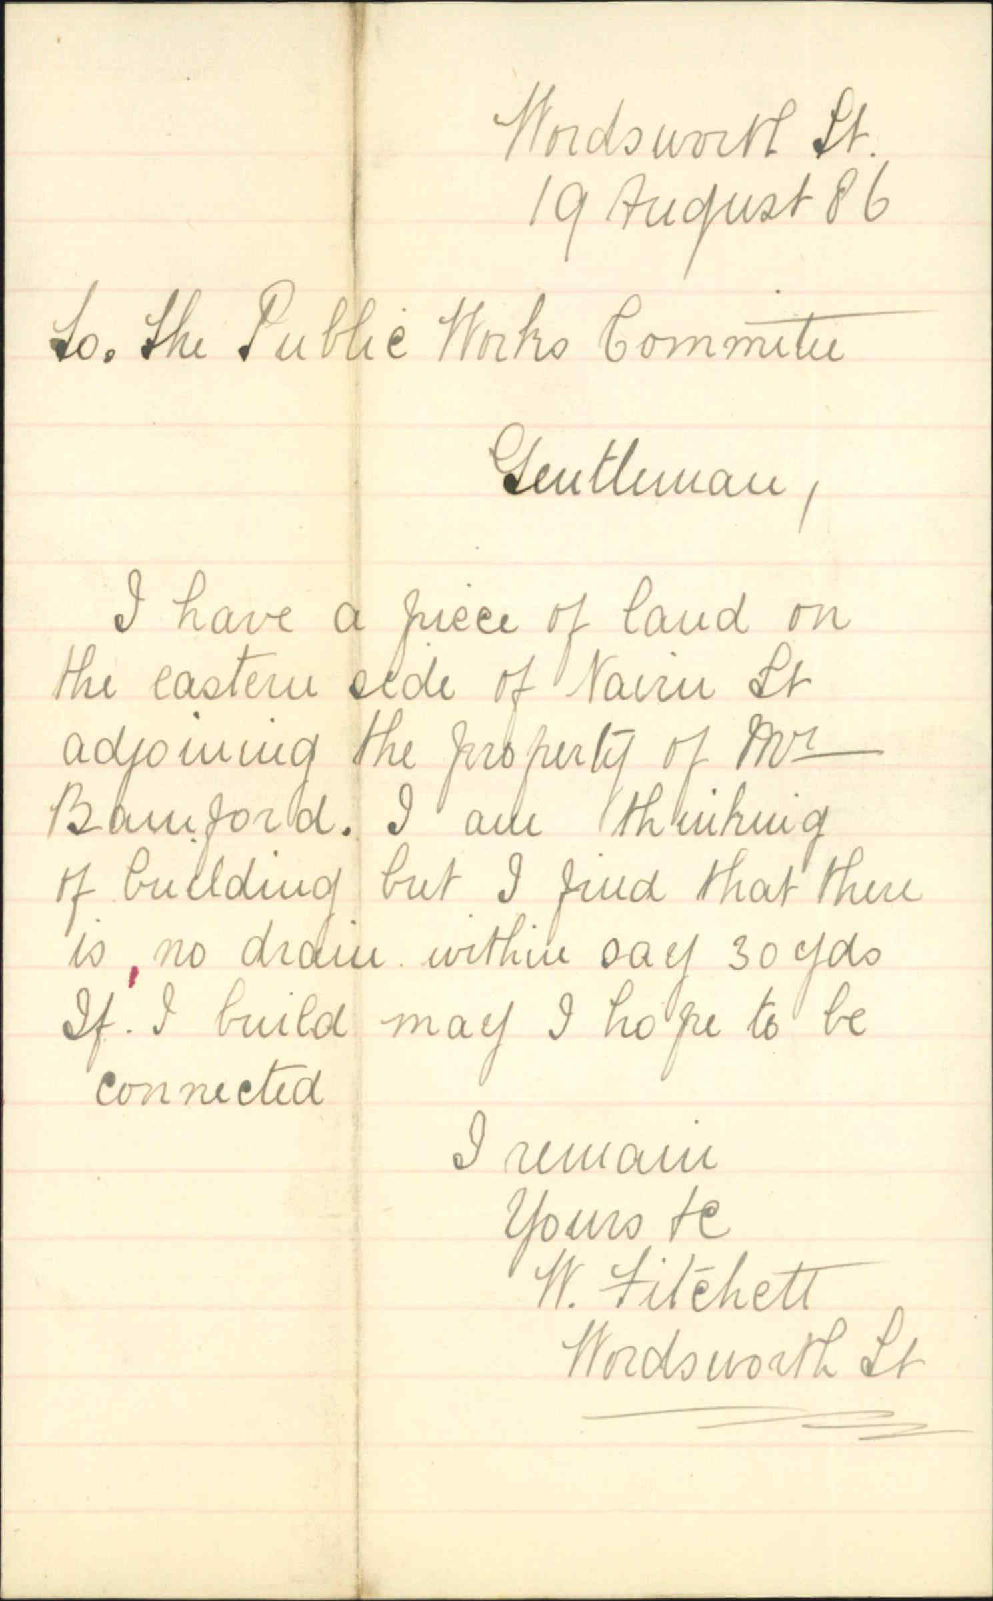 Wordsworth St.
19 August 86
To. The Public Works Committee
Gentleman,
I have a piece of land on
the eastern side of Nairn St
adjoining the property of Mr
Bamford. I am thinking
of building but I find that there
is no drain within say 30 yds
If. I build may I hope to be
connected
I remain
Yours &c
W. Fitchett
Wordsworth St